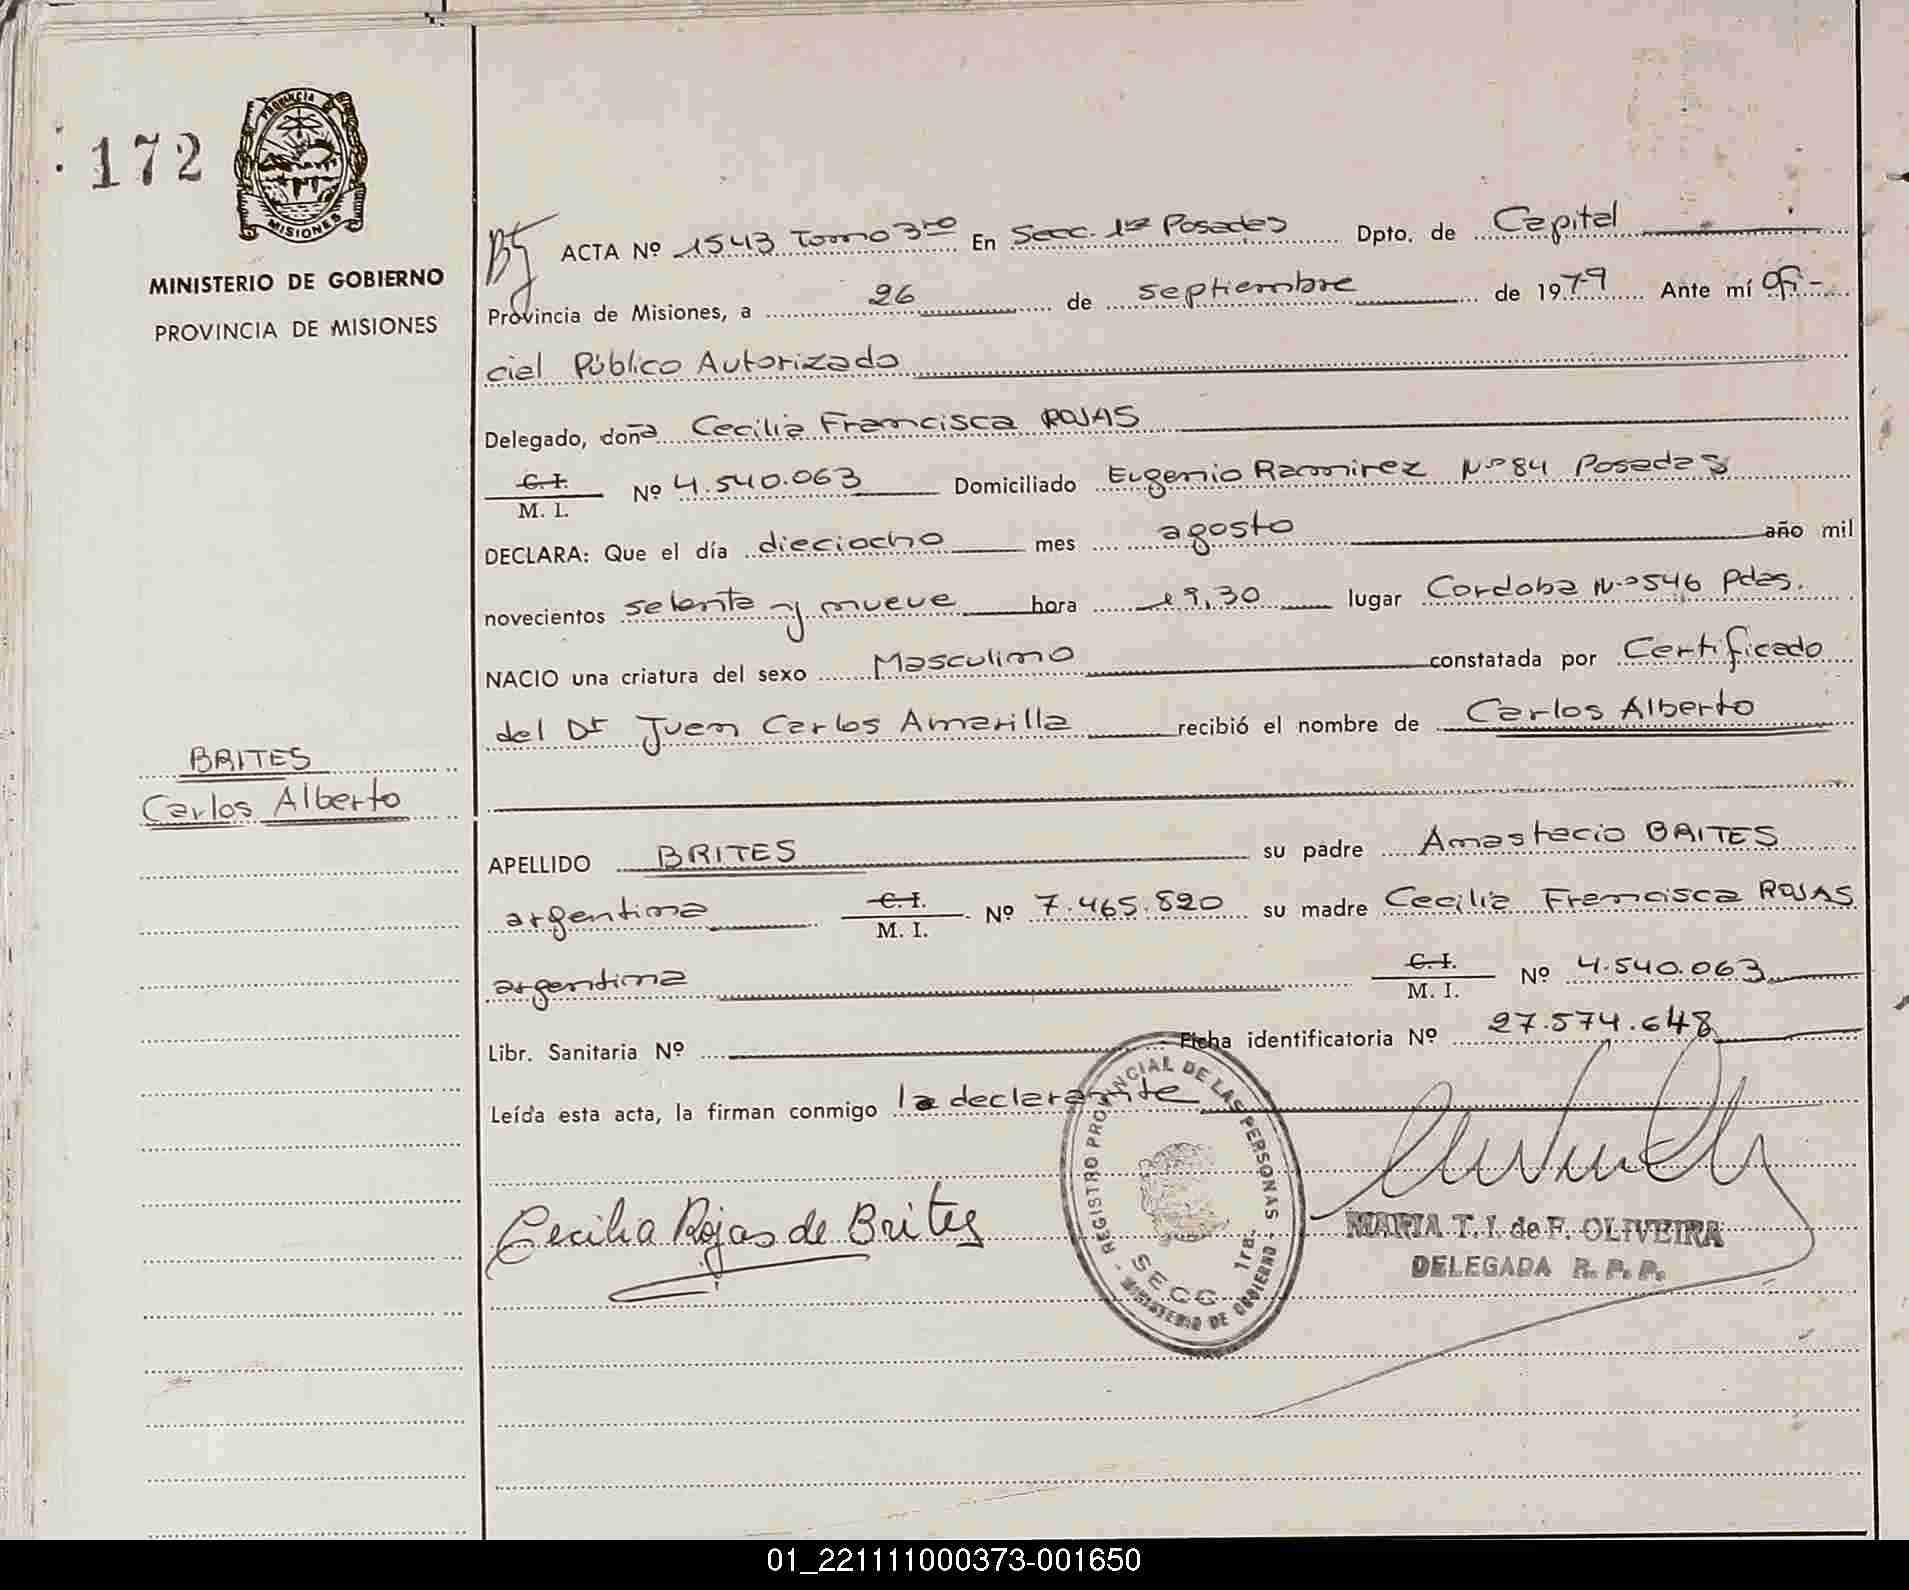 172
PROVINCIA
MISIONES
MINISTERIO DE GOBIERNO
PROVINCIA DE MISIONES
ACTA Nº 1543 Tomo 3ro En Secc. 1ra Posadas Dpto. de Capital
Provincia de Misiones, a 26 de septiembre de 1979 Ante mí Ofi-
cial Público Autorizado
Delegado, doña Cecilia Francisca ROJAS
C. I.
M. I. Nº 4.540.063 Domiciliado Eugenio Ramirez Nº 84 Posadas
DECLARA: Que el día dieciocho mes agosto año mil
novecientos setenta y nueve hora 19,30 lugar Cordoba Nº 546 Pdas.
NACIO una criatura del sexo Masculino constatada por Certificado
del Dr Juan Carlos Amarilla recibió el nombre de Carlos Alberto
BRITES
Carlos Alberto
APELLIDO BRITES su padre Anastacio BRITES
argentina C. I.
M. I. Nº 7.465.820 su madre Cecilia Francisca ROJAS
argentina C. I.
M. I. Nº 4.540.063
Libr. Sanitaria Nº Ficha identificatoria Nº 27.574.648
Leída esta acta, la firman conmigo la declarante
Cecilia Rojas de Brites
REGISTRO PROVINCIAL DE LAS PERSONAS
SECC 1ra.
MINISTERIO DE GOBIERNO
MARIA T. I. de F. OLIVEIRA
DELEGADA R. P. P.
01_221111000373-001650